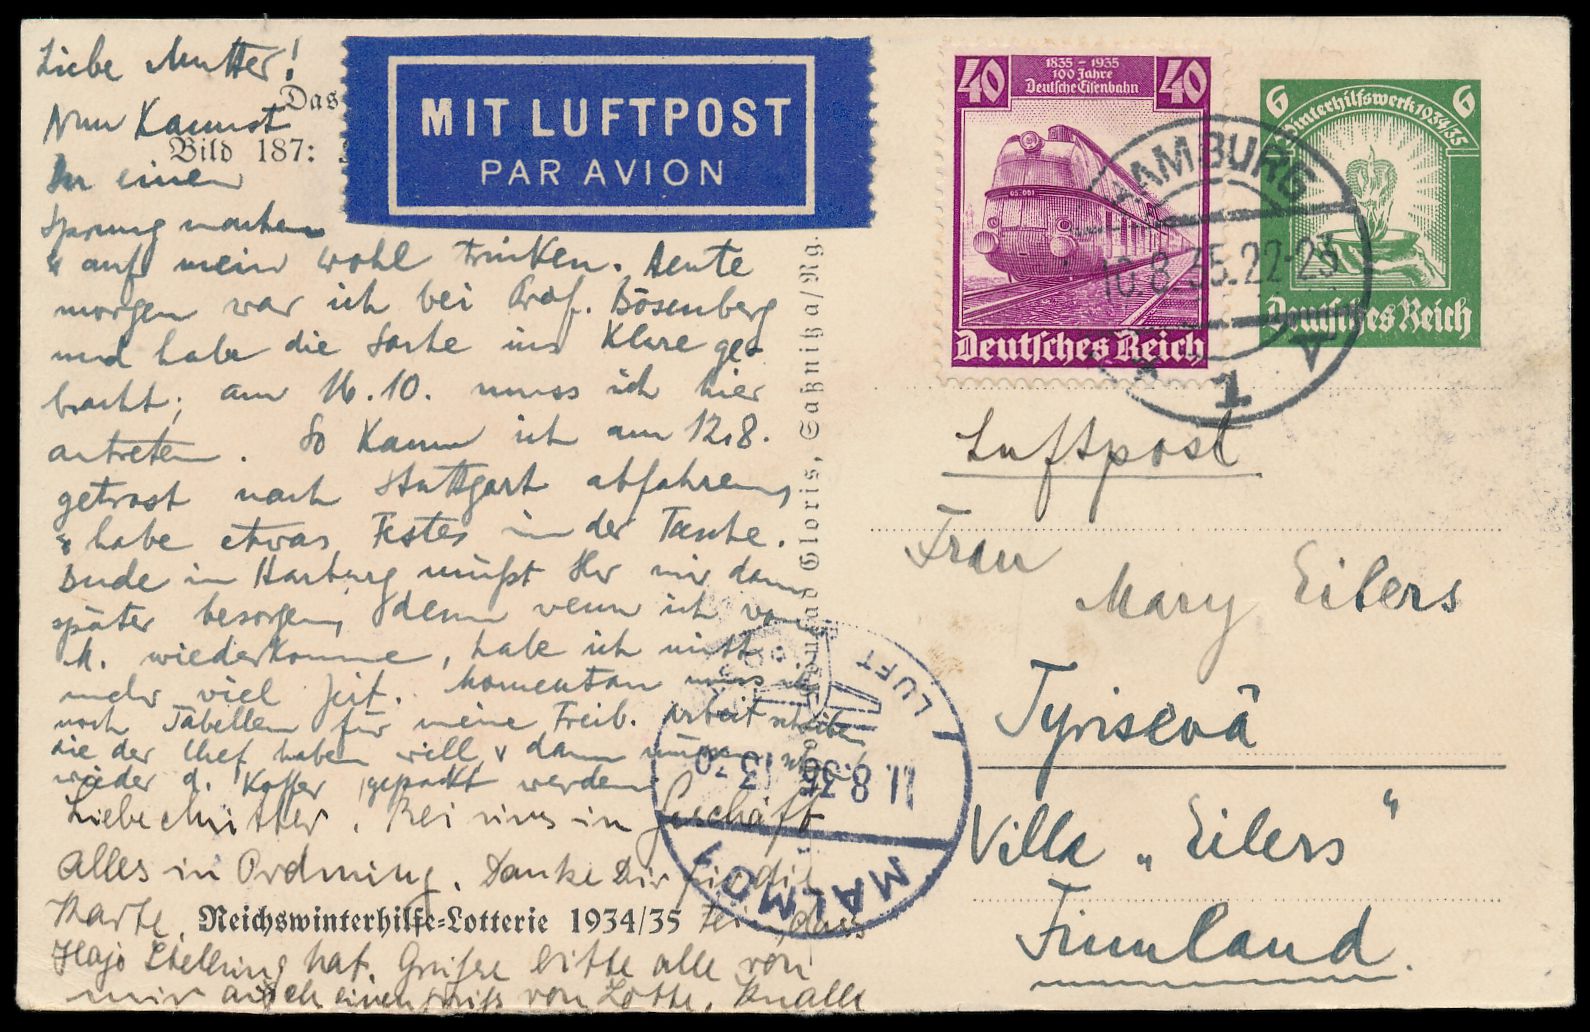 Liebe Mutter!
Das
Nun Kannst
Bild 187:
Du einen
Sprung machen
u auf mein wohl trinken. Heute
morgen war ich bei Prof. Bösenberg
und habe die Sache ins Klare ge-
bracht; am 16.10. muss ich hier
antreten. So Kann ich am 12.8.
getrost nach Stuttgart abfahren,
habe etwas Festes in der Tasche.
Bude in Harburg müßt Ihr mir dann
später besorgen, denn wenn ich von
M. wiederkomme, habe ich nicht
mehr viel Zeit. Momentan muss ich
noch Tabellen für meine Freib. Arbeit schreiben,
die der Chef haben will u dann
wieder d. Koffer gepackt werden.
Liebe Mutter, Bei uns in Geschäft
alles in Ordnung. Danke Dir für die
Karte.
Reichswinterhilfe-Lotterie 1934/35
Hajo Stellung hat. Grüße bitte alle von
mir auch einen Gruß von Lotte.
MIT LUFTPOST
PAR AVION
40 1835-1935 40
100 Jahre
Deutsche Eisenbahn
05.001
Deutsches Reich
6 Winterhilfswerk 1934/35 6
Deutsches Reich
HAMBURG
10.8.35.22-23
* 1
Luftpost
Frau
Mary Eilers
Tyrisevä
Villa „Eilers"
Finnland.
MALMÖ 1
LUFT
11.8.35